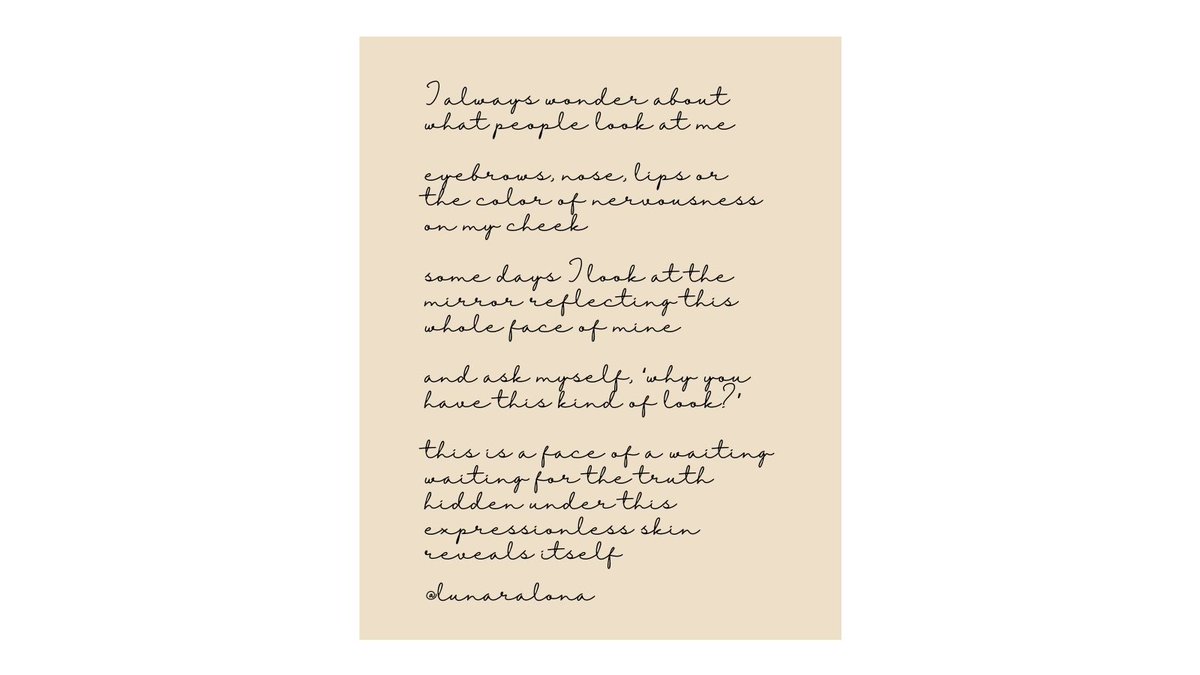 I always wonder about
what people look at me
eyebrows, nose, lips or
the color of nervousness
on my cheek
some days I look at the
mirror reflecting this
whole face of mine
and ask myself, 'why you
have this kind of look?'
this is a face of a waiting
waiting for the truth
hidden under this
expressionless skin
reveals itself
@lunaralona